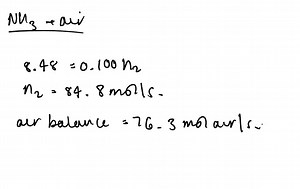 NH3 + air
8.48 = 0.100 n2
n2 = 84.8 mol/s.
air balance = 76.3 mol air/s.